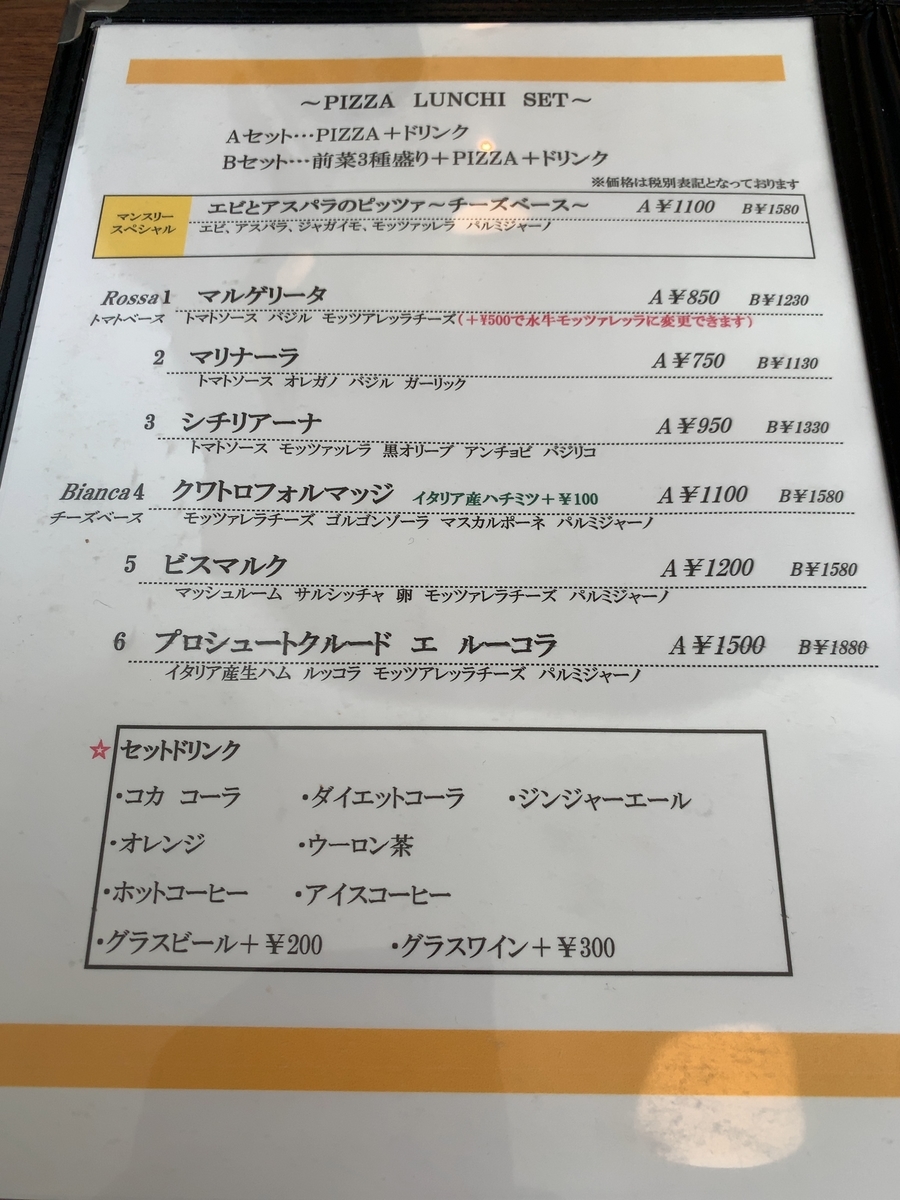 ～PIZZA LUNCHI SET～
Aセット…PIZZA＋ドリンク
Bセット…前菜3種盛り＋PIZZA＋ドリンク
※価格は税別表記となっております
マンスリー
スペシャル
エビとアスパラのピッツァ～チーズベース～ A￥1100 B￥1580
エビ、アスパラ、ジャガイモ、モッツァッレラ パルミジャーノ
Rossa1 マルゲリータ A￥850 B￥1230
トマトベース トマトソース バジル モッツアレッラチーズ(＋¥500で水牛モッツァレッラに変更できます)
2 マリナーラ A￥750 B￥1130
トマトソース オレガノ バジル ガーリック
3 シチリアーナ A￥950 B￥1330
トマトソース モッツァッレラ 黒オリーブ アンチョビ バジリコ
Bianca4 クワトロフォルマッジ イタリア産ハチミツ＋￥100 A￥1100 B￥1580
チーズベース モッツァレラチーズ ゴルゴンゾーラ マスカルポーネ パルミジャーノ
5 ビスマルク A￥1200 B￥1580
マッシュルーム サルシッチャ 卵 モッツァレラチーズ パルミジャーノ
6 プロシュートクルード エ ルーコラ A￥1500 B￥1880
イタリア産生ハム ルッコラ モッツアレッラチーズ パルミジャーノ
☆セットドリンク
・コカ コーラ ・ダイエットコーラ ・ジンジャーエール
・オレンジ ・ウーロン茶
・ホットコーヒー ・アイスコーヒー
・グラスビール＋￥200 ・グラスワイン＋￥300